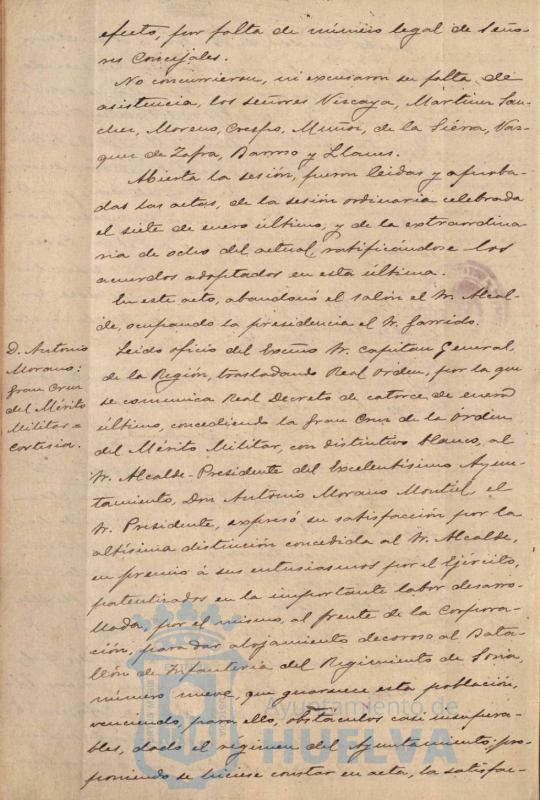 efecto, por falta de número legal de Seño-
res Concejales.
No concurrieron, ni excusaron su falta de
asistencia, los señores Vizcaya, Martín Sán-
chez, Moreno, Crespo, Muñoz, de la Sierra, Vaz-
quez de Zafra, Barroso y Llanes.
Abierta la sesión, fueron leidas y aproba-
das las actas, de la sesión ordinaria celebrada
el siete de enero último, y de la extraordina-
ria de ocho del actual, ratificándose los
acuerdos adoptados en esta última.
En este acto, abandonó el salón el Sr. Alcal-
de, ocupando la presidencia el Sr. Garrido.
D. Antonio
Morano:
Gran Cruz
del Mérito
Militar =
Cortesia.
Leido oficio del Excmo Sr. Capitan General,
de la Región, trasladando Real Orden, por la que
se comunica Real Decreto de catorce de enero
último, concediendo la Gran Cruz de la Orden
del Mérito Militar, con distintivo blanco, al
Sr. Alcalde-Presidente del Excelentísimo Ayun-
tamiento, Don Antonio Morano Montiel, el
Sr. Presidente, expresó su satisfacción por la
altísima distinción concedida al Sr. Alcalde,
en premio á sus entusiasmos por el Ejército,
patentizados en la importante labor desarro-
llada, por el mismo, al frente de la Corpora-
ción, para dar alojamiento decoroso al Bata-
llón de Infantería del Regimiento de Soria,
número nueve, que guarnece esta población,
venciendo, para ello, obstáculos casi insupera-
bles, dado el régimen del Ayuntamiento; pro-
poniendo se hiciese constar en acta, la satisfac-
Ayuntamiento de
HUELVA